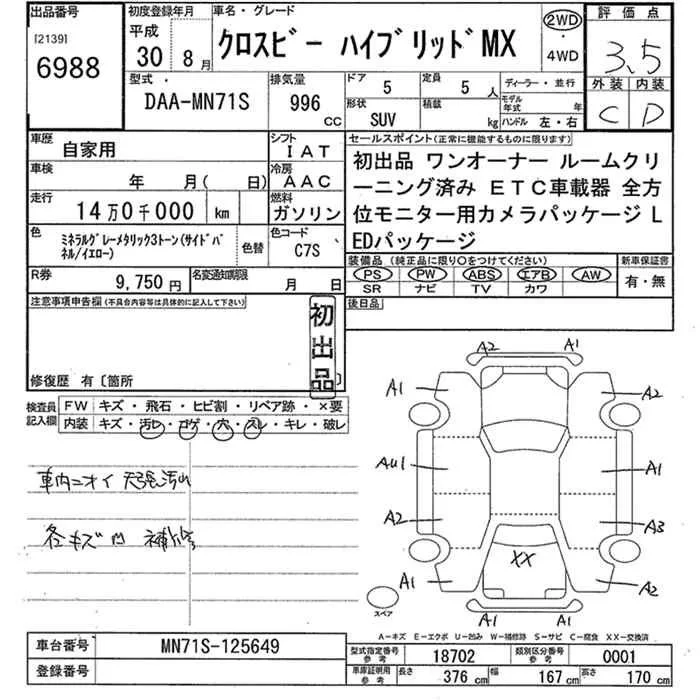 出品番号
[2139]
6988
初度登録年月
平成 30 年 8 月
車名・グレード
クロスビー ハイブリッドMX
2WD・4WD
評価点
3.5
型式・
DAA-MN71S
排気量
996 CC
ドア
5
定員
5 人
形状
SUV
積載
kg
ディーラー・並行
モデル年式 年
ハンドル 左・右
外装 内装
C D
車歴
自家用
シフト
IAT
車検
年 月( 日)
冷房
AAC
走行
14万0千000 km
燃料
ガソリン
色
ミネラルグレーメタリック3トーン(サイドパネル/イエロー)
色替
色コード
C7S
R券
9,750 円
名変通知期限
月 日
セールスポイント(正常に機能するものに限ります)
初出品 ワンオーナー ルームクリ
ーニング済み ETC車載器 全方
位モニター用カメラパッケージ L
EDパッケージ
装備品(純正品に限り○をつけてください)
PS PW ABS エアB AW
SR ナビ TV カワ
新車保証書
有・無
後日品
注意事項申告欄(不具合内容等は具体的に記入して下さい)
初出品
修復歴 有〔箇所
検査員記入欄
FW キズ・飛石・ヒビ割・リペア跡・×要
内装 キズ・汚レ・コゲ・穴・スレ・キレ・破レ
車内ニオイ 天張汚れ
各キズ凹 補修
A2 A1
A1 A2
AU1 A1
A2 A3
XX
A1 A2
A1 A1
スペア
A-キズ E-エクボ U-凹み W-補修跡 S-サビ C-腐食 XX-交換済
車台番号
MN71S-125649
登録番号
型式指定番号参考
18702
類別区分番号参考
0001
車庫証明用参考
長さ 376 cm
幅 167 cm
高さ 170 cm